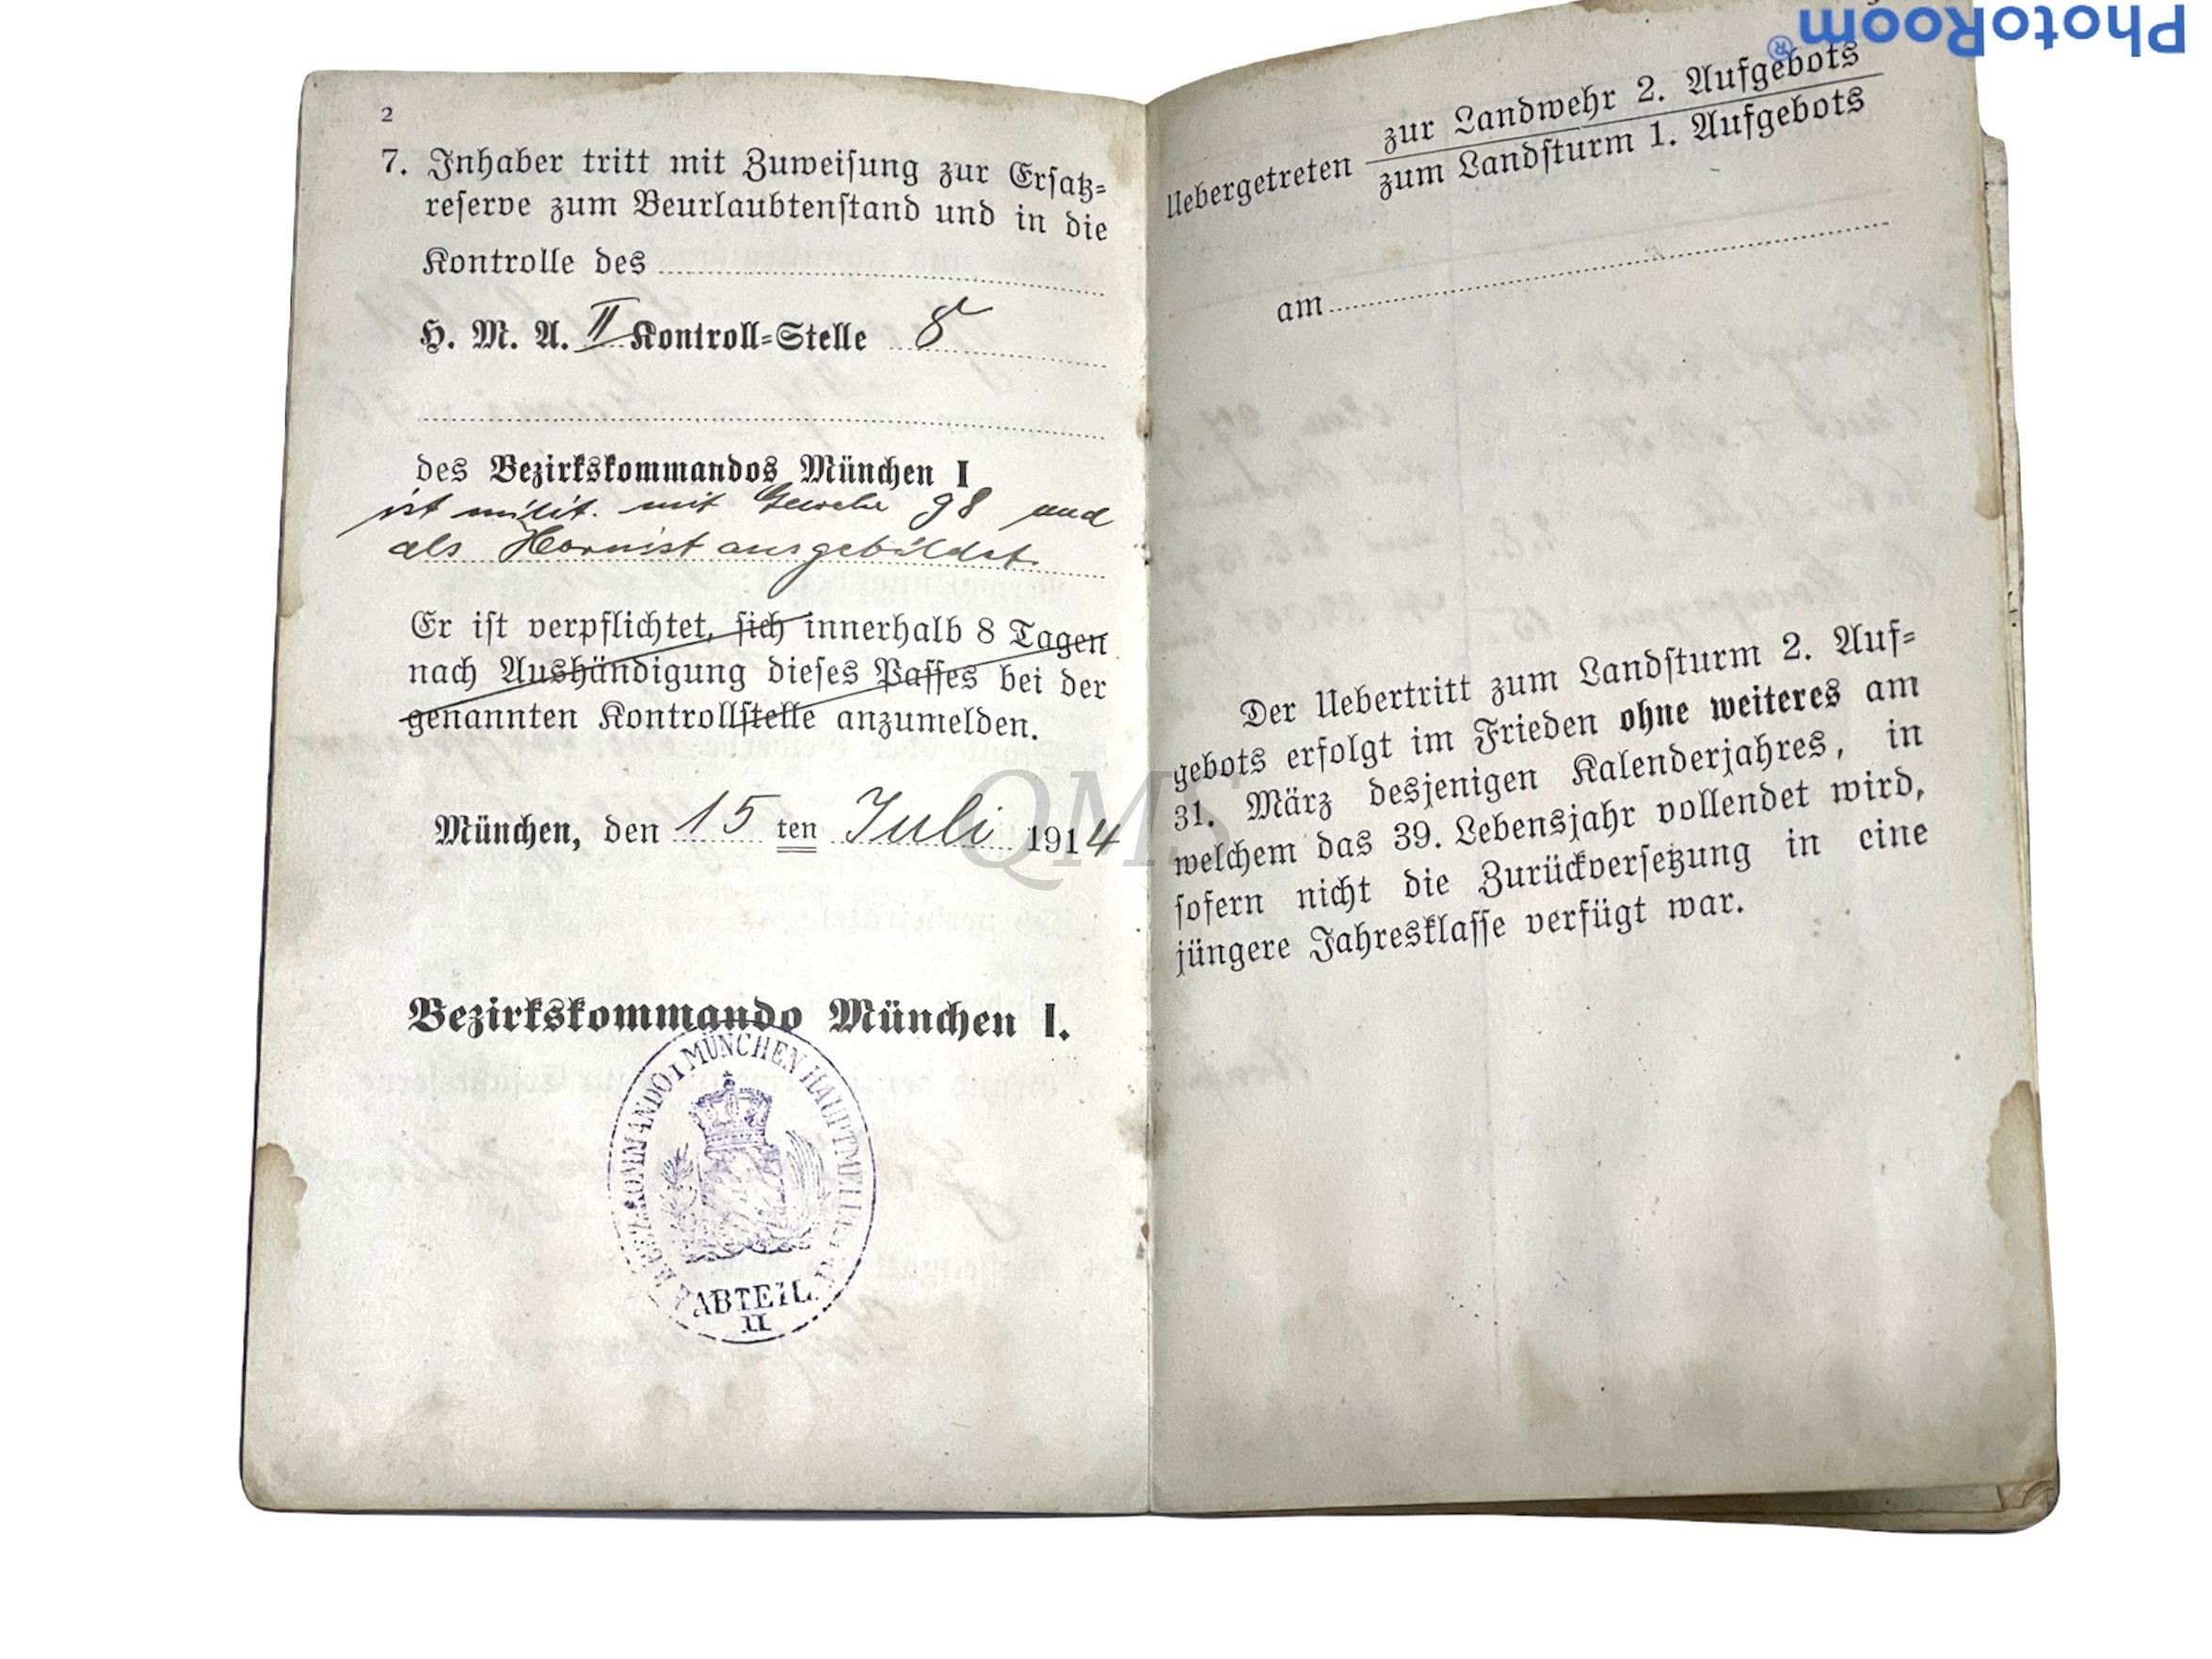 2
7. Inhaber tritt mit Zuweisung zur Ersatz=
reserve zum Beurlaubtenstand und in die
Kontrolle des
H. M. A. II Kontroll=Stelle 8
des Bezirkskommandos München I
ist milit. mit Gewehr 98 und
als Hornist ausgebildet
Er ist verpflichtet, sich innerhalb 8 Tagen
nach Aushändigung dieses Passes bei der
genannten Kontrollstelle anzumelden.
München, den 15 ten Juli 1914
Bezirkskommando München I.
BEZ. KOMMANDO I MÜNCHEN HAUPTMELDE
ABTEIL.
II
zur Landwehr 2. Aufgebots
Uebergetreten
zum Landsturm 1. Aufgebots
am
Der Uebertritt zum Landsturm 2. Auf=
gebots erfolgt im Frieden ohne weiteres am
31. März desjenigen Kalenderjahres, in
welchem das 39. Lebensjahr vollendet wird,
sofern nicht die Zurückversetzung in eine
jüngere Jahresklasse verfügt war.
QMS
PhotoRoom®